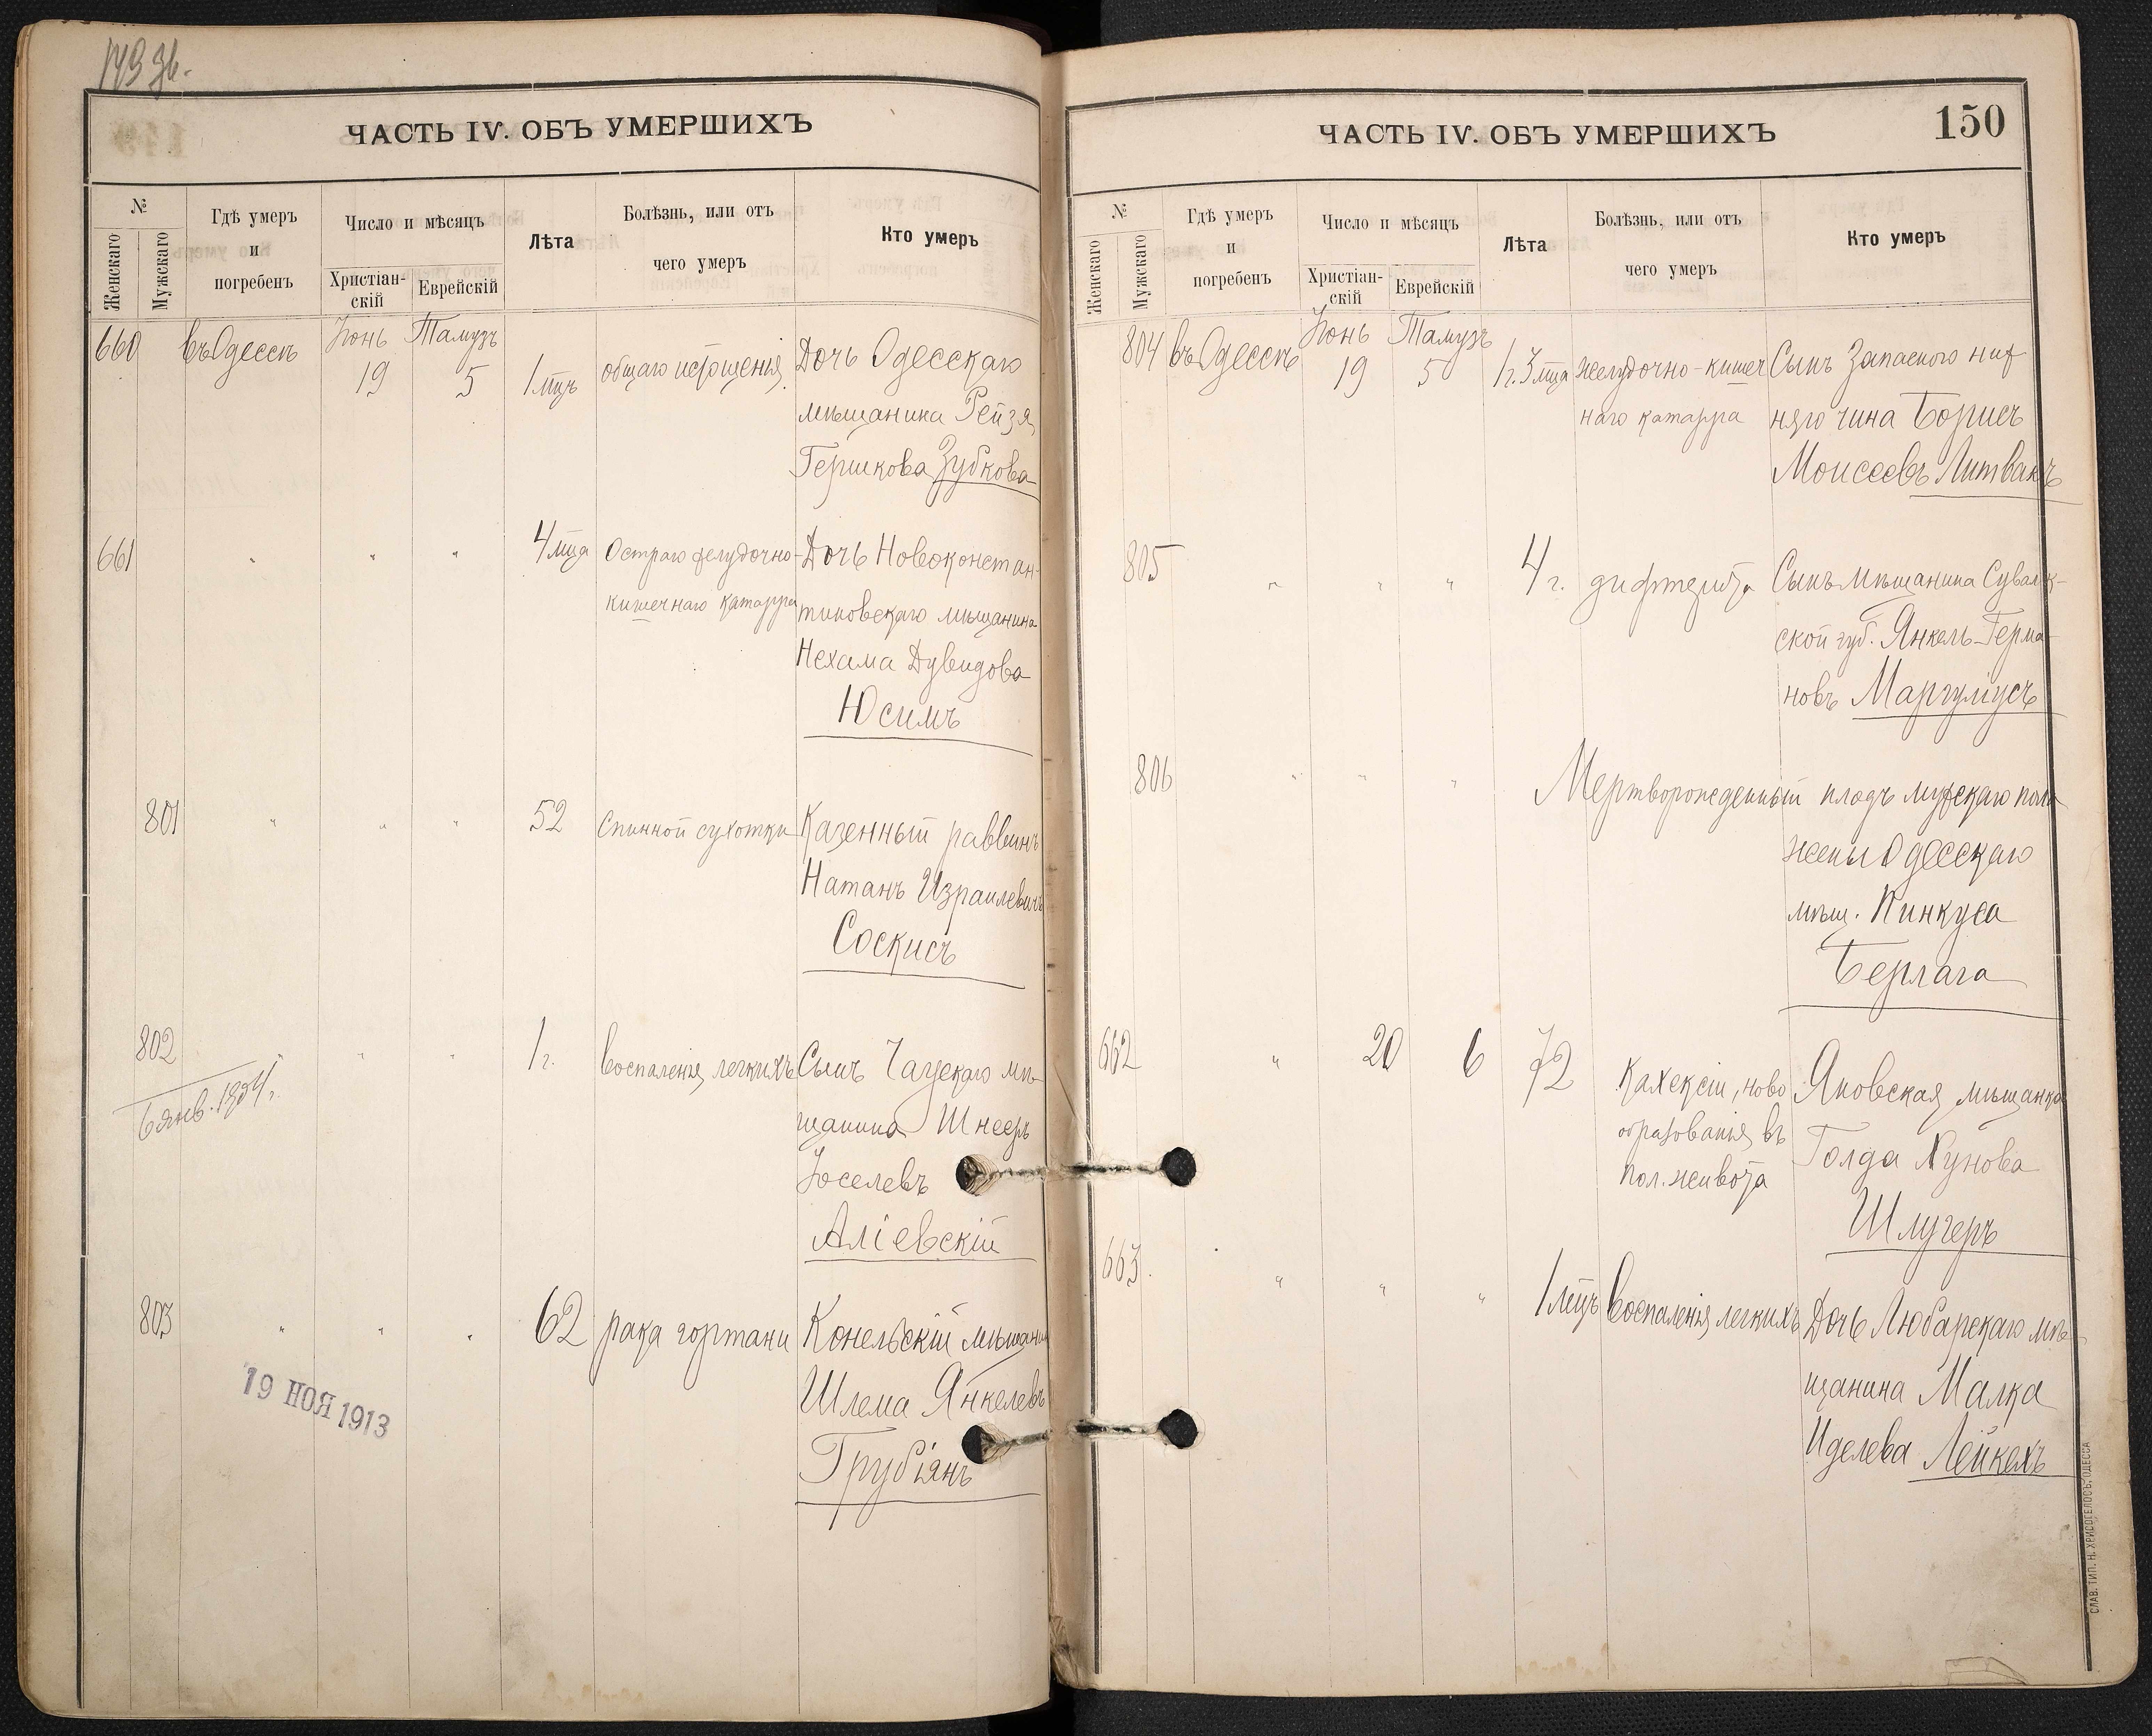 ЧАСТЬ IV. ОБЪ УМЕРШИХЪ
№
Женскаго
Мужскаго
Гдѣ умеръ
и
погребенъ
Число и мѣсяцъ
Христіан-
скій
Еврейскій
Лѣта
Болѣзнь, или отъ
чего умеръ
Кто умеръ
660 въ Одессѣ Іюнь 19 Тамузъ 5 1 мцъ общаго истощенія Дочь Одесскаго
мѣщанина Рейзя
Гершкова Зубкова
661 " " " 4 мца Остраго желудочно- Дочь Новоконстан-
кишечнаго катарра тиновскаго мѣщанина
Нехама Дувидова
Юсимъ
801 " " " 52 Спинной сухотки Казенный раввинъ
Натанъ Израилевичъ
Соскисъ
802 " " " 1 г. Воспаленія легкихъ Сынъ Чаусскаго мѣ-
щанина Шнееръ
6 янв. 1924 г.
Іоселевъ
Аліевскій
803 " " " 62 рака гортани Конельскій мѣщанинъ
Шлема Янкелевъ
Трубіянъ
19 НОЯ 1913
ЧАСТЬ IV. ОБЪ УМЕРШИХЪ
150
№
Женскаго
Мужскаго
Гдѣ умеръ
и
погребенъ
Число и мѣсяцъ
Христіан-
скій
Еврейскій
Лѣта
Болѣзнь, или отъ
чего умеръ
Кто умеръ
804 въ Одессѣ Іюнь 19 Тамузъ 5 1 г. 3 мца желудочно-кишеч Сынъ Запасного ниж
наго катарра няго чина Борисъ
Моисеевъ Литвакъ
805 " " " 4 г. дифтерита Сынъ мѣщанина Сувалк-
ской губ. Янкель-Герма-
новъ Маргуліусъ
806 " " " Мертворожденный плодъ мужскаго пола
жены Одесскаго
мѣщ. Пинкуса
Берлага
662 " 20 6 72 Кахексіи, ново Яновская мѣщанка
образованія въ Голда Хунова
пол. живота
Шлугеръ
663. " " " 1 мцъ Воспаленія легкихъ Дочь Любарскаго мѣ-
щанина Малка
Иделева Лейкехъ
СЛАВ. ТИП. Н. ХРИСОГЕЛОСЪ, ОДЕССА